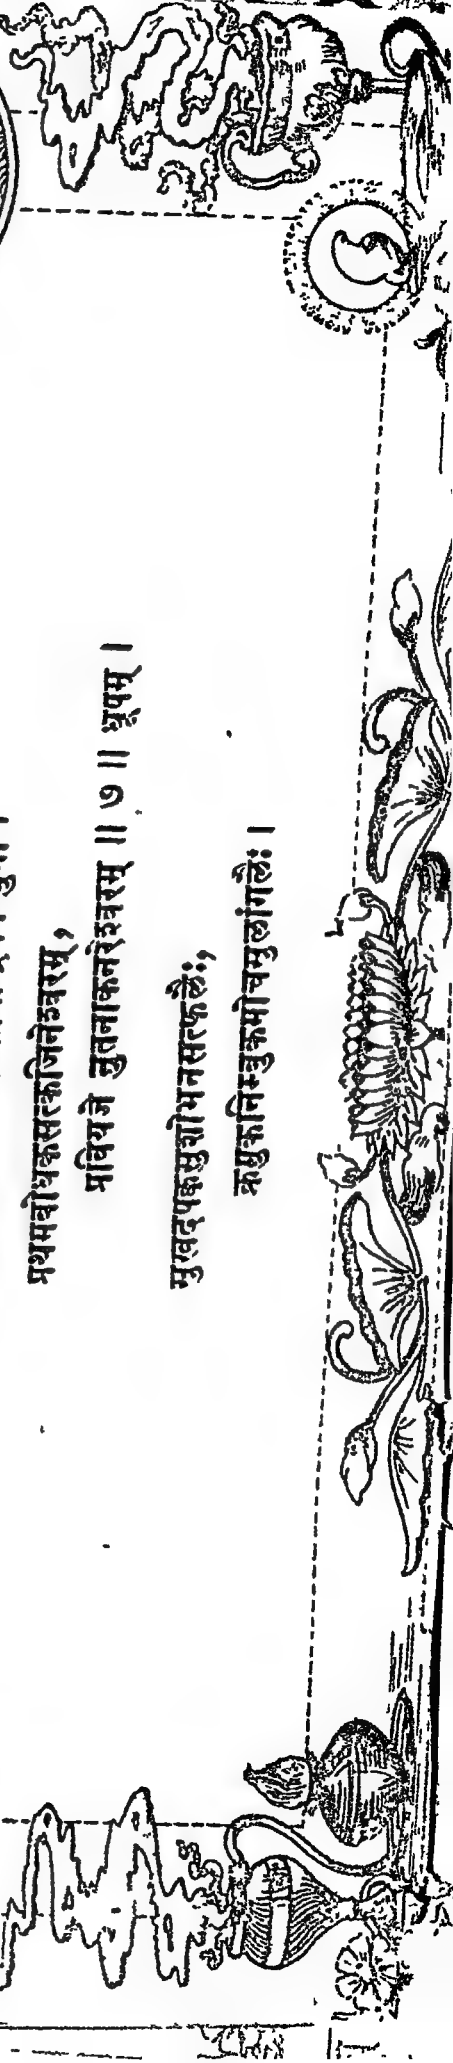 प्रथमबोधकसत्कजिनेश्वरम्,
प्रवियजे नुतनाकनरेश्वरम् ॥ ७ ॥ धूपम् ।
मुखदपक्वसुशोभनसत्फलैः,
क्रमुकनिम्बुकमोचमुलांगलैः ।